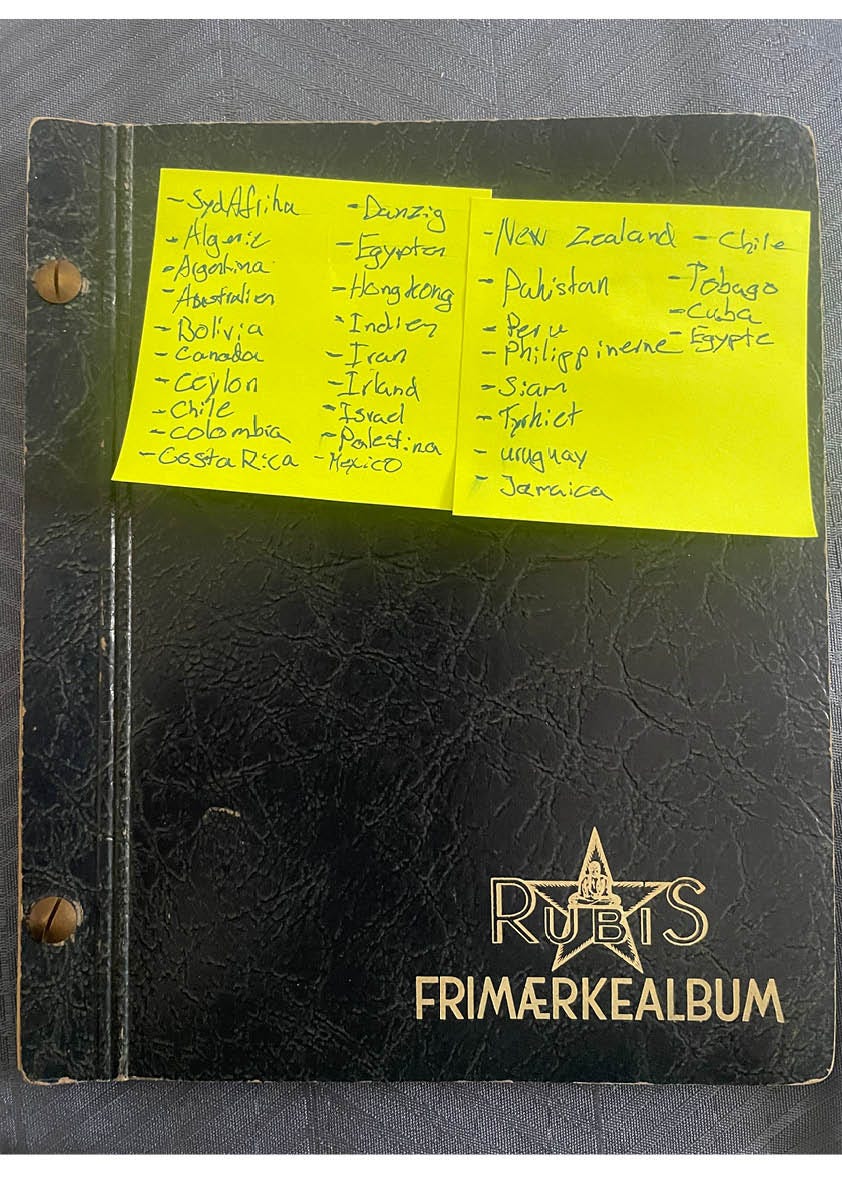 - SydAfrika
- Algeriet
- Argentina
- Australien
- Bolivia
- Canada
- Ceylon
- Chile
- Colombia
- Costa Rica
- Danzig
- Egypten
- Hongkong
- Indien
- Iran
- Irland
- Israel
- Palestina
- Mexico
- New Zealand
- Pakistan
- Peru
- Philippinerne
- Siam
- Tyrkiet
- uruguay
- Jamaica
- Chile
- Tobago
- Cuba
- Egypte
RUBIS
FRIMÆRKEALBUM